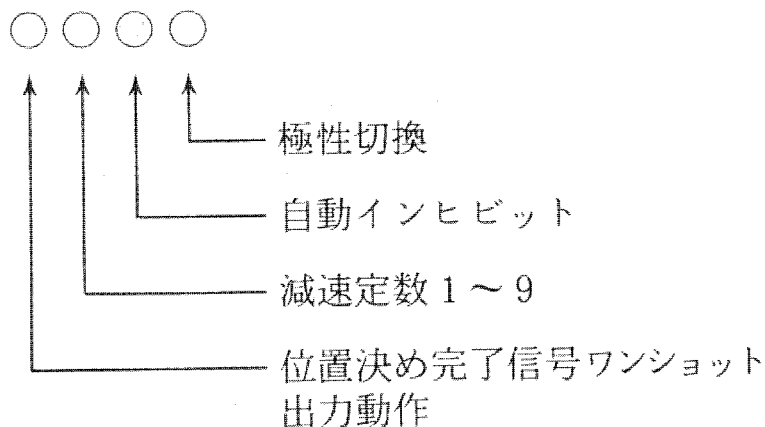 ○○○○
極性切換
自動インヒビット
減速定数 1 ～ 9
位置決め完了信号ワンショット
出力動作